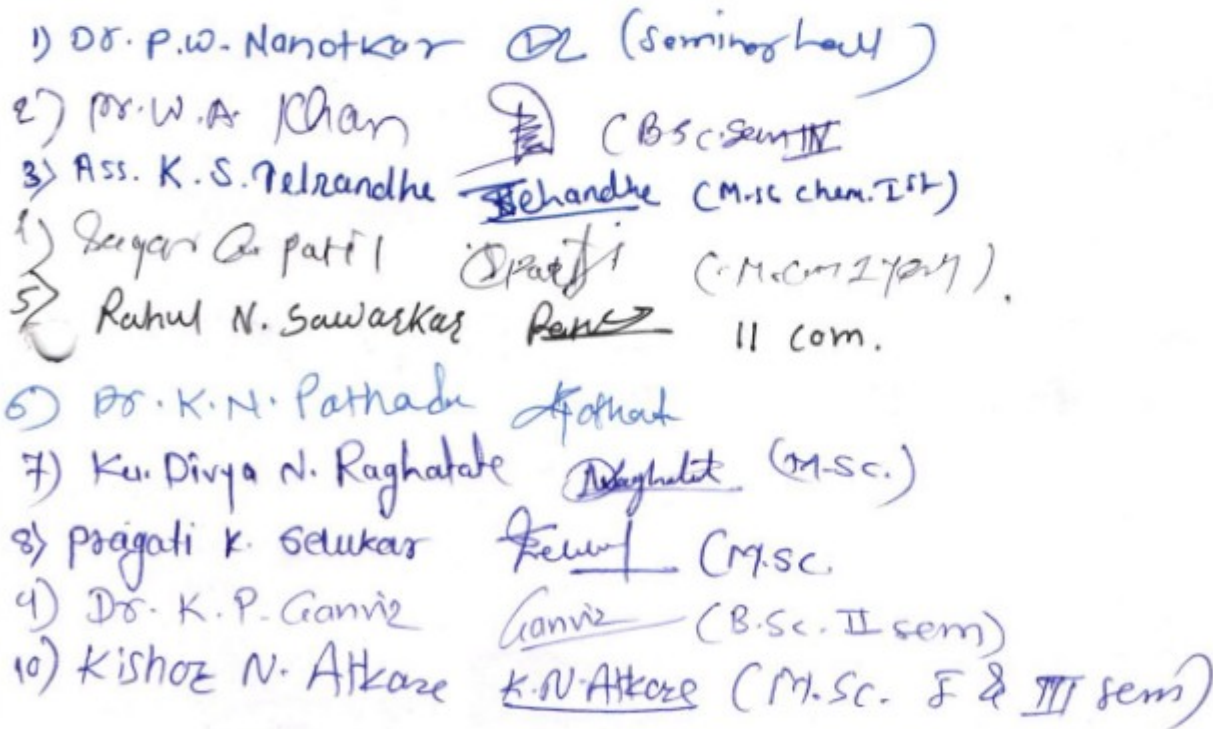 1) Dr. P.W. Nanotkar (Seminar hall)
2) Dr. W.A. Khan (B.Sc. Sem IV
3) Ass. K.S. Telrandhe Telrandhe (M.sc chem. Ist)
Sagar patil Patil
5) Rahul N. Sawarkar II com.
6) Dr. K.N. Pathade
7) Ku. Divya N. Raghatate (M.Sc.)
8) Pragati K. Selukar (M.Sc.
9) Dr. K.P. Ganvir Ganvir (B.Sc. II sem)
10) Kishor N. Atkare K.N. Atkare (M.Sc. I & III sem)